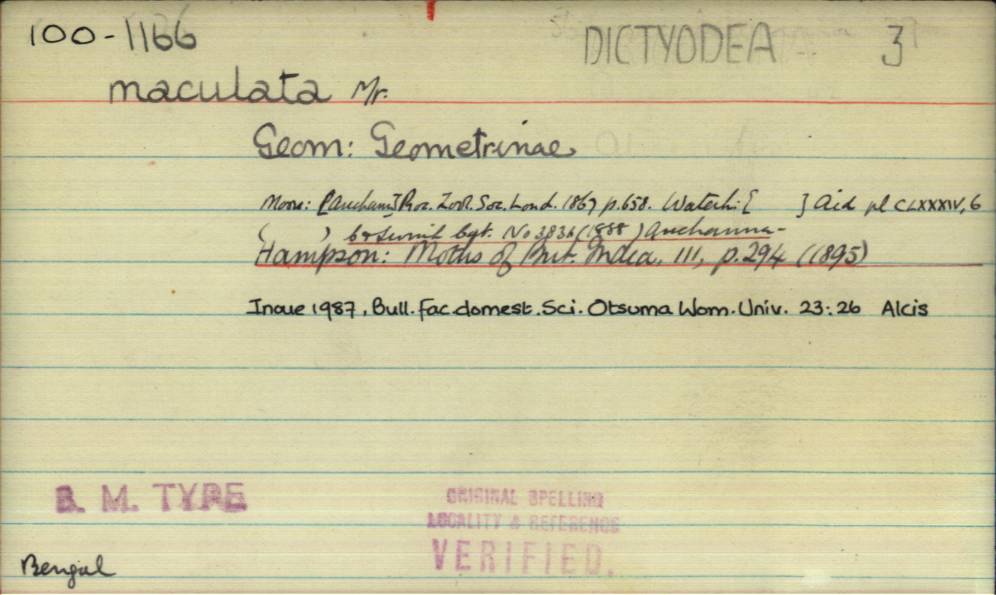 100-1166
DICTYODEA 3
maculata Mr.
Geom: Geometrinae
Moore: [ ] Proc. Zool. Soc. Lond. 1867 p.658. Waterh: [ ] Aid pl CLXXXIV, 6
( ) No 3836 (1888)
Hampson: Moths of Brit. India, III, p.294 (1895)
Inoue 1987, Bull. Fac. domest. Sci. Otsuma Wom. Univ. 23: 26 Alcis
B. M. TYPE
ORIGINAL SPELLING
LOCALITY & REFERENCE
VERIFIED.
Bengal